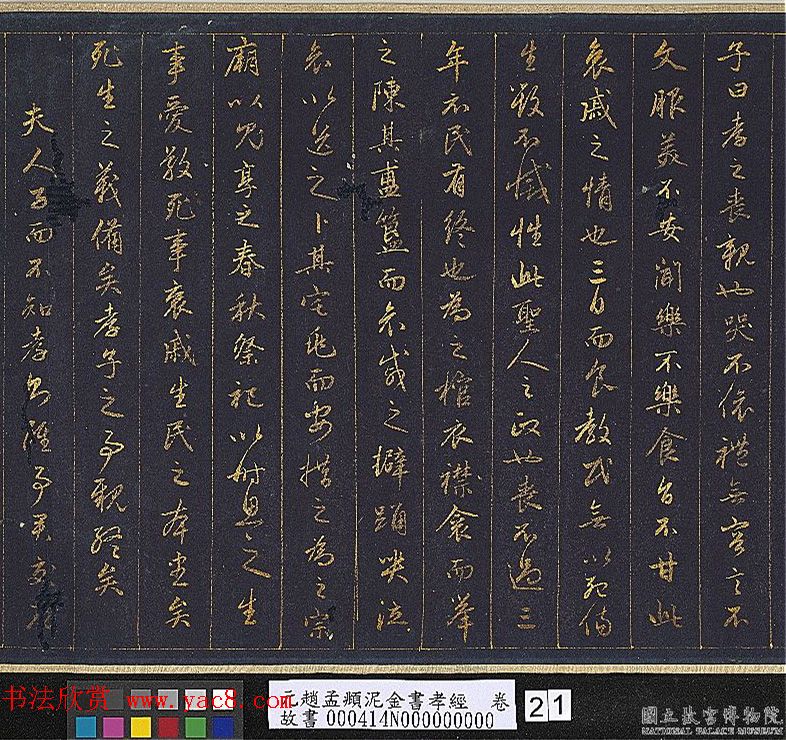 子曰孝之喪親也哭不依禮無容言不
文服美不安聞樂不樂食旨不甘此
哀戚之情也三日而食教民無以死傷
生毀不滅性此聖人之政也喪不過三
年示民有終也為之棺衣襟衾而舉
之陳其簠簋而哀慼之擗踊哭泣
哀以送之卜其宅兆而安措之為之宗
廟以鬼享之春秋祭祀以時思之生
事愛敬死事哀戚生民之本盡矣
死生之義備矣孝子之事親終矣
夫人子而不知孝
書法欣賞 www.yac8.com
元趙孟頫泥金書孝經 卷
故書 000414N000000000
21
國立故宮博物院
NATIONAL PALACE MUSEUM